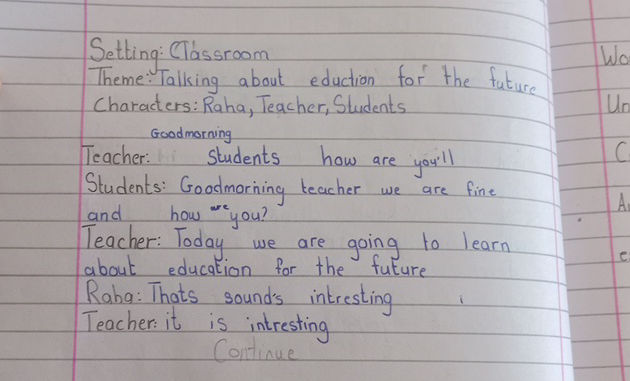 Setting: Classroom
Theme: Talking about eduction for the future
Characters: Raha, Teacher, Students
Goodmorning
Teacher: Hi Students how are you'll
Students: Goodmorning teacher we are fine
and how are you?
Teacher: Today we are going to learn
about education for the future
Raha: Thats sound's intresting
Teacher: it is intresting
Continue
Wo
Un
C
A
e